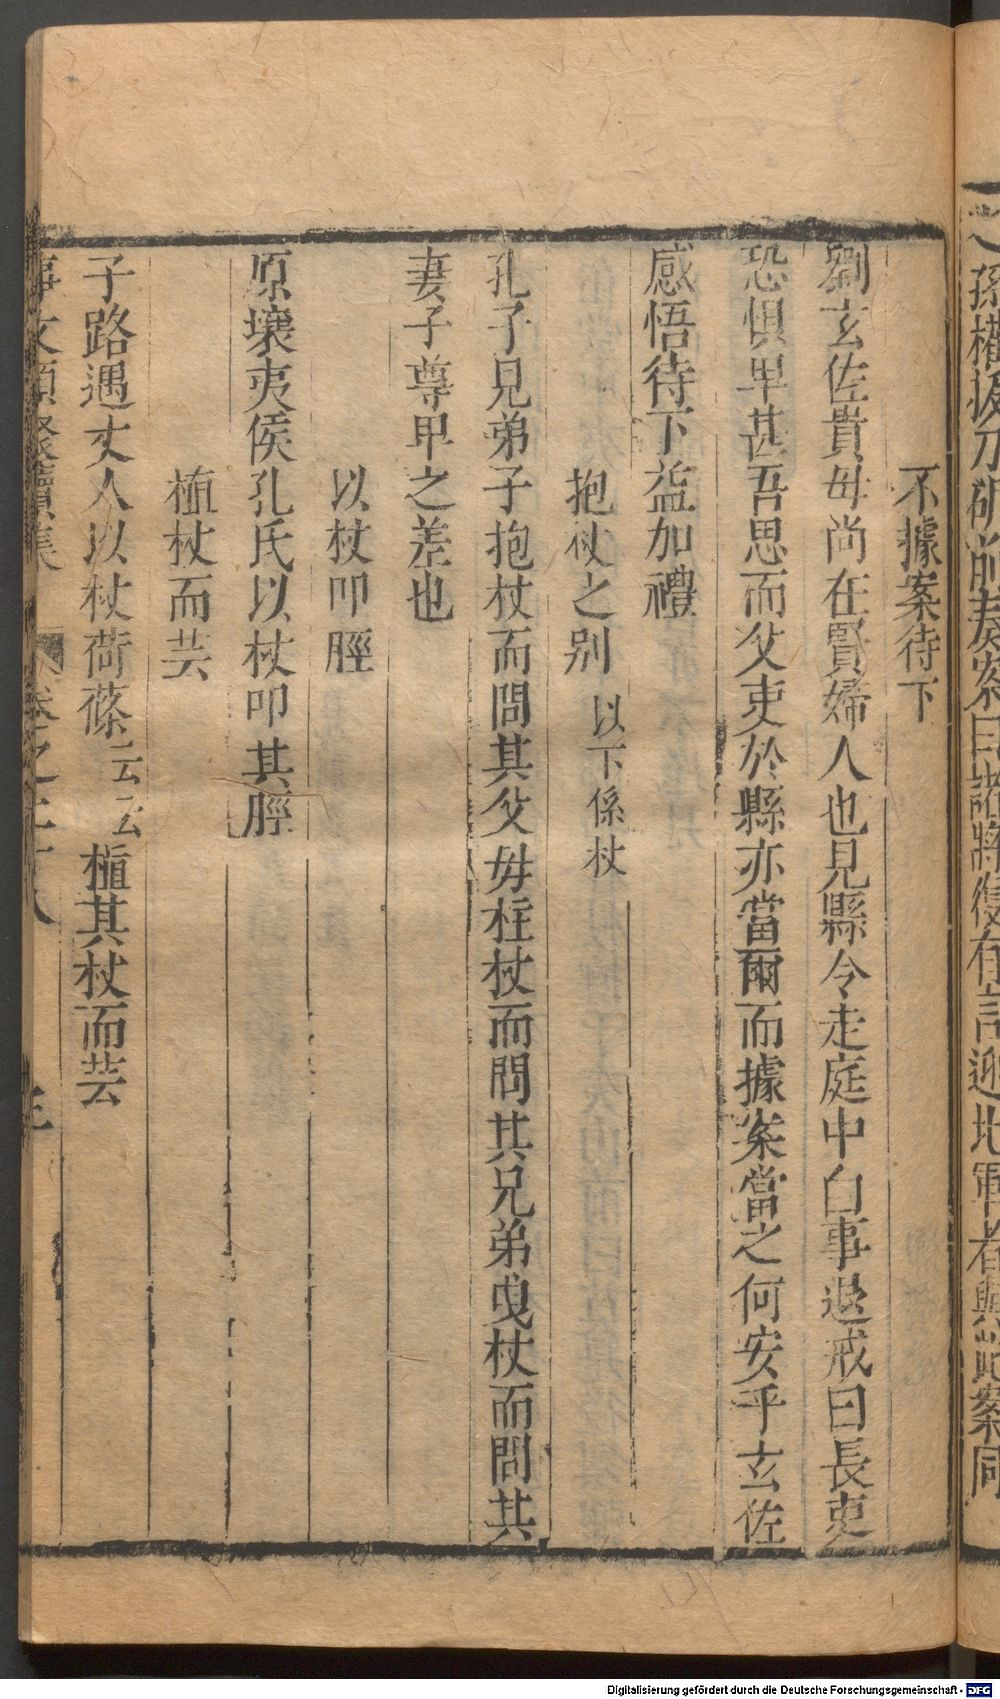 之孫權拔刀斫前奏案曰諸將復有言迎北軍者與此案同
不據案待下
劉玄佐貴母尚在賢婦人也見縣令走庭中白事退戒曰長吏
恐惧卑甚吾思而父吏於縣亦當爾而據案當之何安乎玄佐
感悟待下益加禮
抱杖之别 以下係杖
孔子見弟子抱杖而問其父毋柱杖而問其兄弟曳杖而問其
妻子尊卑之差也
以杖叩脛
原壤夷俟孔氏以杖叩其脛
植杖而芸
子路遇丈人以杖荷蓧云云植其杖而芸
事文類聚續集 卷之二十八
Digitalisierung gefördert durch die Deutsche Forschungsgemeinschaft - DFG